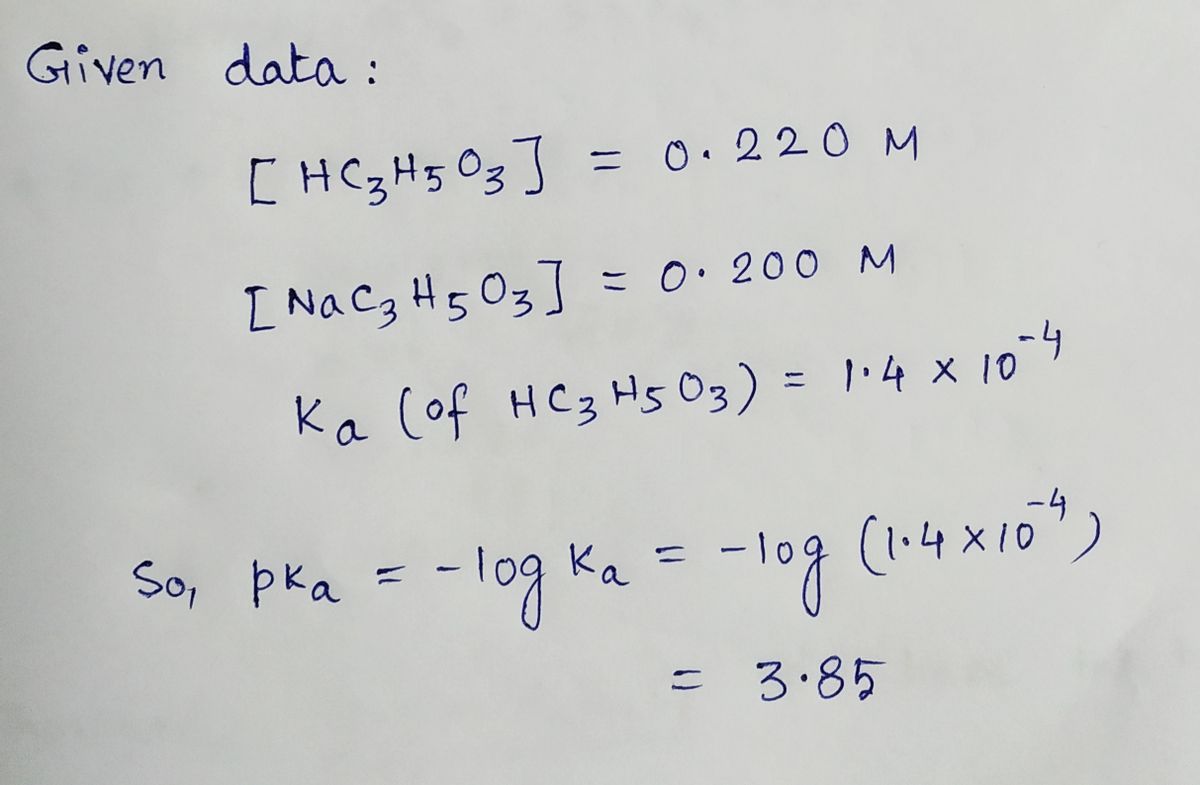 Given data :
[ HC₃H₅O₃ ] = 0.220 M
[ NaC₃H₅O₃ ] = 0.200 M
Ka (of HC₃H₅O₃) = 1.4 x 10⁻⁴
So, pKa = -log Ka = -log (1.4 x 10⁻⁴)
= 3.85